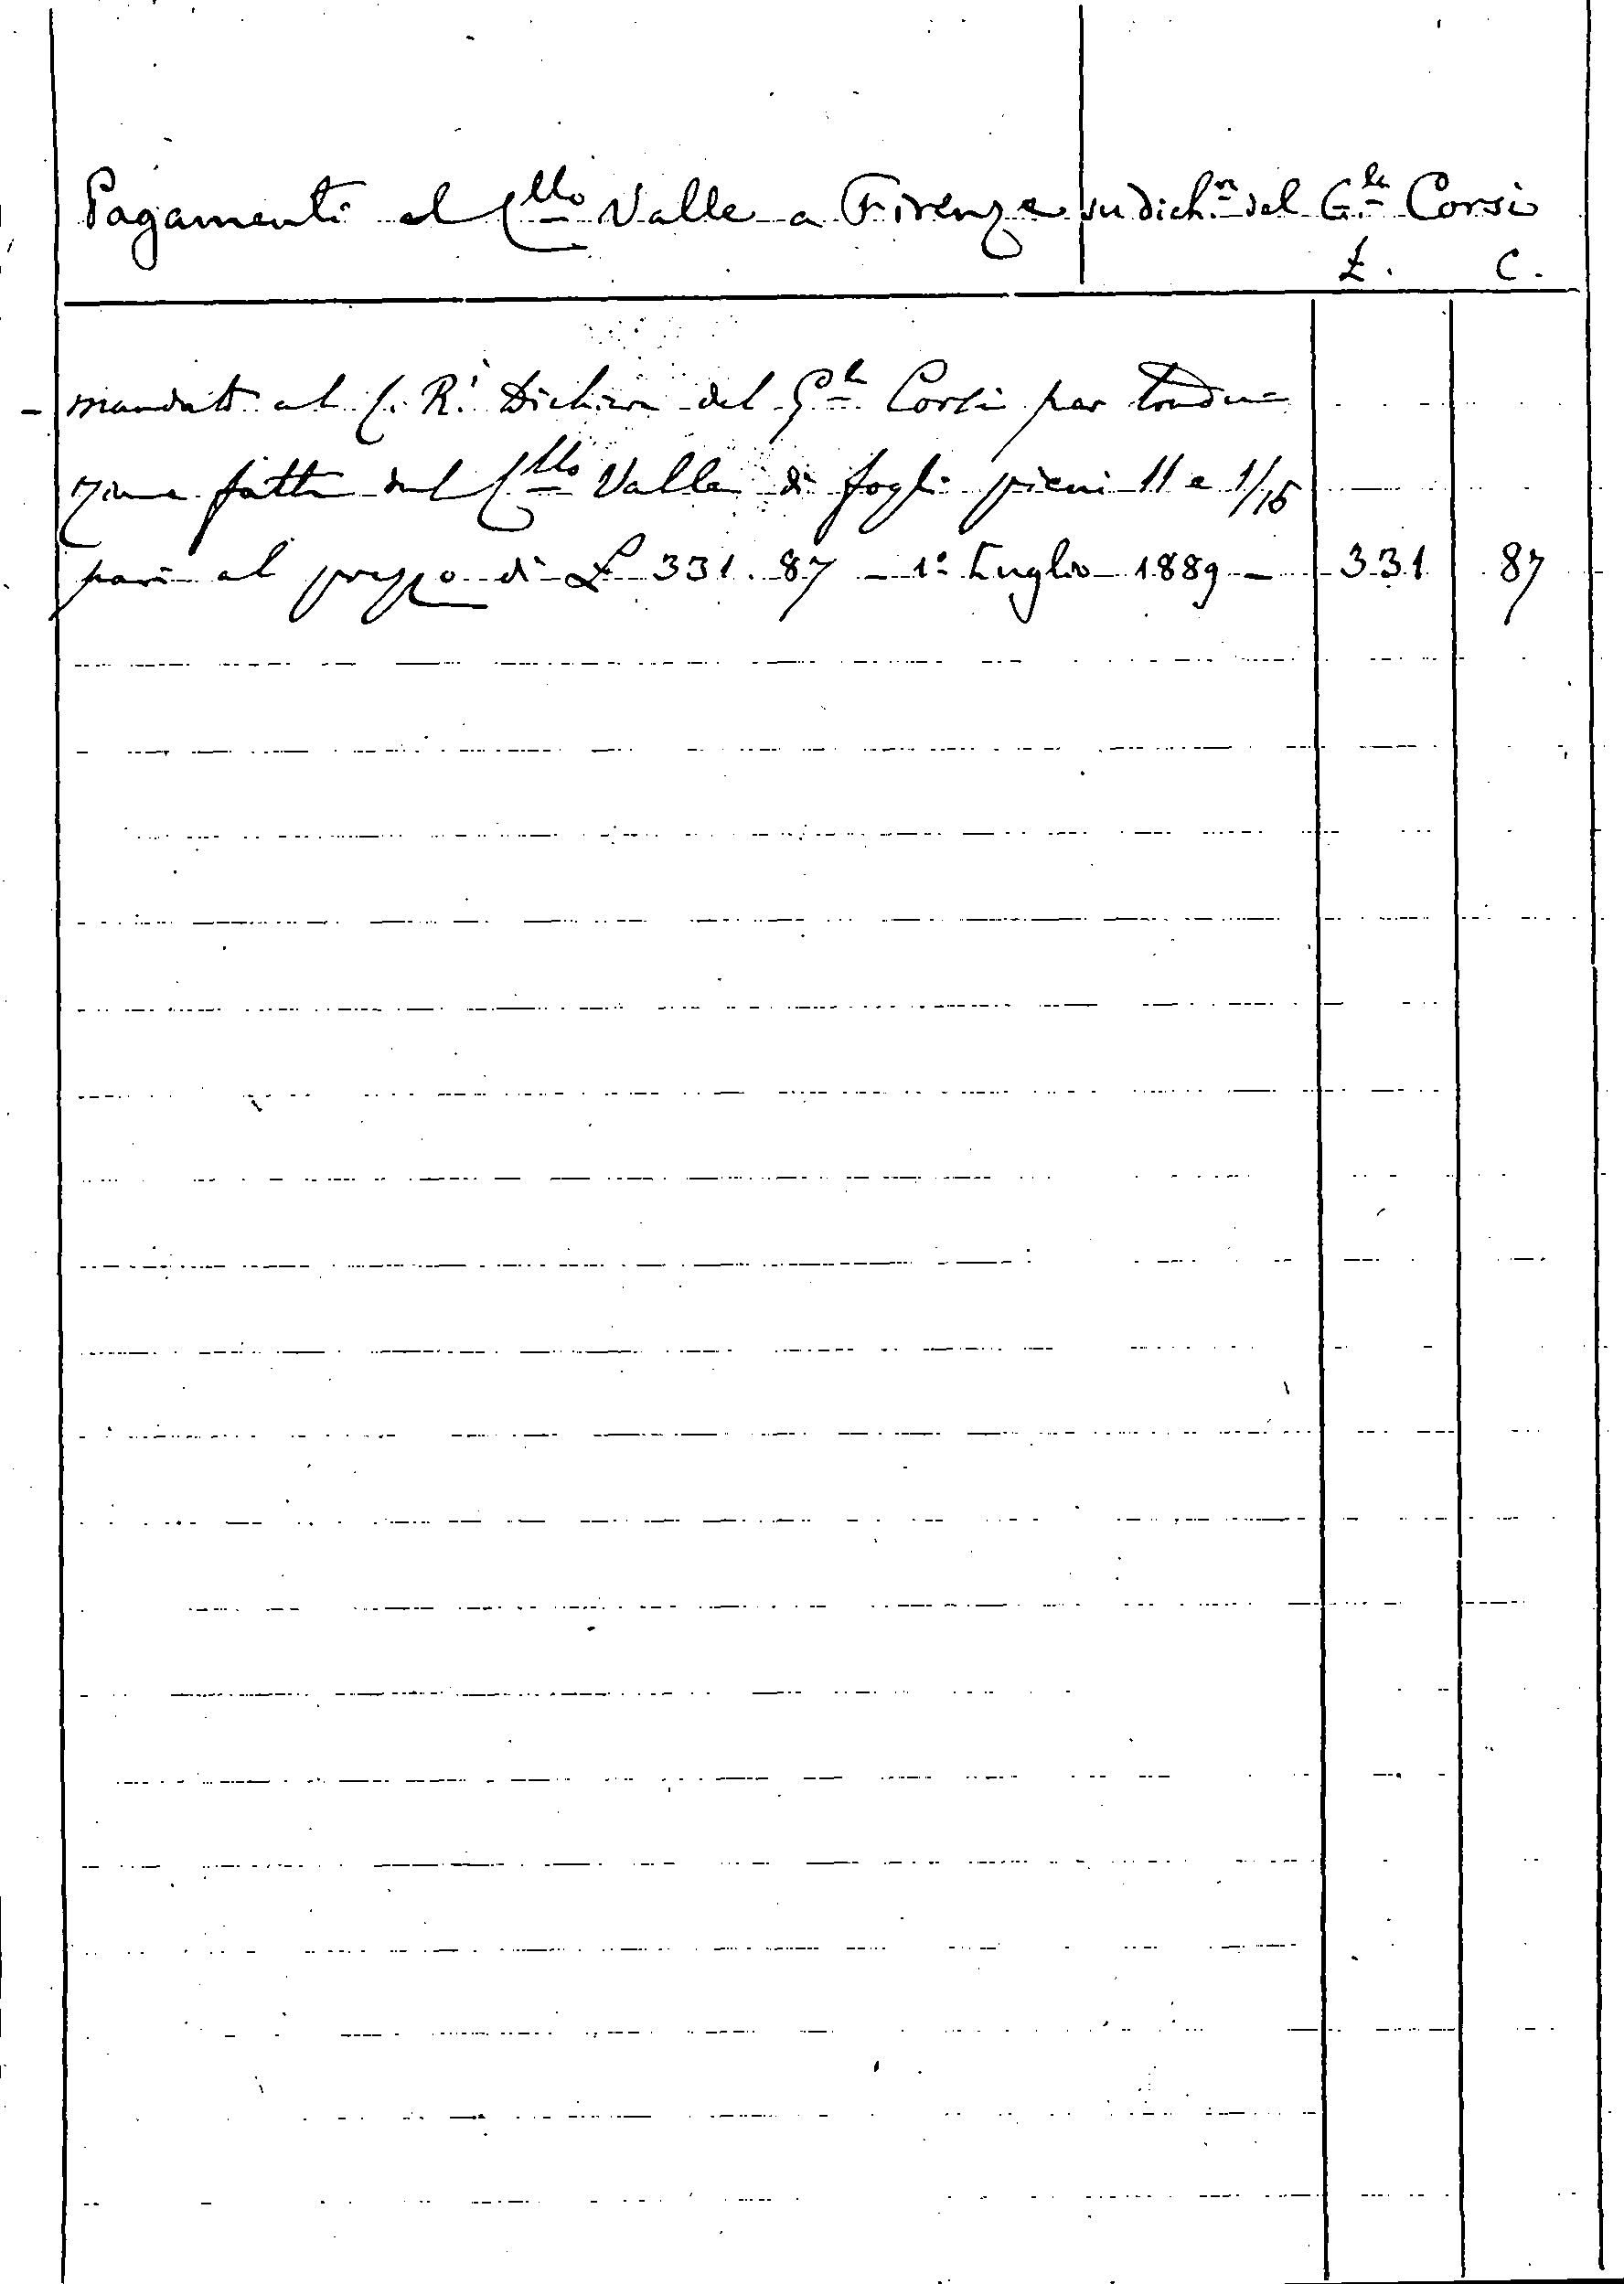 Pagamenti al Cllo Valle a Firenze su dichn del Gle Corsi
£. C.
- mandato al C. R. Dichiaron del Gle Corsi per tradu=
zione fatta dal Cllo Valle di fogli pieni 11 e 1/16
pari al prezzo di £ 331.87 - 1° Luglio 1889 - 331 87